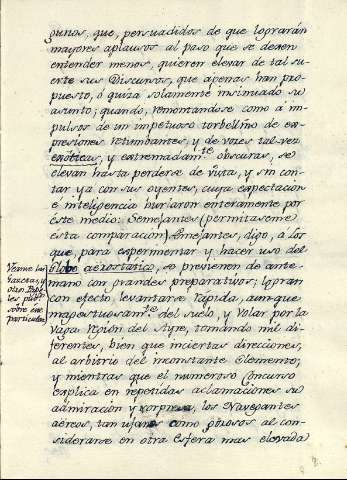 gunos, que, persuadidos de que lograrán
mayores aplausos al paso que se dexen
entender menos, quieren elevar de tal su-
erte sus Discursos, que apenas han pro-
puesto, ó quiza solamente insinuado su
asunto; quando, remontandose como a im-
pulsos de un impetuoso torbellino de ex-
presiones retumbantes, y de voces tal vez
exóticas, y extremadam.te obscuras, se
elevan hasta perderse de vista, y sin con-
tar ya con sus oyentes, cuya expectacion
e inteligencia burlaron enteramente por
este medio. Semejantes (permitaseme
esta comparacion) semejantes, digo, a los
que, para experimentar y hacer uso del
Globo aërostatico, se previenen de ante-
mano con grandes preparativos; logran
con efecto, levantarse rapida, aunque
magestuosam.te del suelo, y volar por la
vaga region del Ayre, tomando mil di-
ferentes, bien que inciertas direcciones,
al arbitrio del inconstante Elemento;
y mientras que el numeroso Concurso
explica en repetidas aclamaciones su
admiración y sorpresa, los Navegantes
aëreos, tan ufanos como al con-
siderarse en otra Esfera mas elevada
Veanse las
Gacetas, y
otros Pape-
les pub.
sobre este
particular.